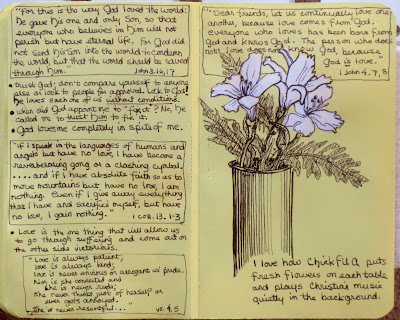 "For this is the way God loved the world:
he gave his one and only Son, so that
everyone who believes in him will not
perish but have eternal life. For God did
not send his Son into the world to condemn
the world, but that the world should be saved
through him.
John 3.16,17
• Trust God; don't compare yourself to anyone
else or look to people for approval. Look to God!
He loves each one of us without conditions.
• Did God appoint me to "fix it"? No, he
called me to trust Him to fix it.
• God loves me completely in spite of me.
"If I speak in the languages of humans and
angels but have no love, I have become a
reverberating gong or a clashing cymbal,
.... and if I have absolute faith so as to
move mountains but have no love, I am
nothing. Even if I give away everything
that I have and sacrifice myself, but have
no love, I gain nothing."
1 COR. 13. 1-3
• Love is the one thing that will allow us
to go through suffering and come out on
the other side victorious.
"Love is always patient;
love is always kind;
love is never envious or arrogant w/ pride.
Nor is she conceited and
she is never rude;
she never thinks just of herself or
ever gets annoyed.
She is never resentful...
vs. 4,5
"Dear friends, let us continually love one
another, because love comes from God.
Everyone who loves has been born from
God and knows God. The person who does
not love does not know God, because
God is love."
1 John 4.7,8
I love how Chick fil A puts
fresh flowers on each table
and plays Christian music
quietly in the background.